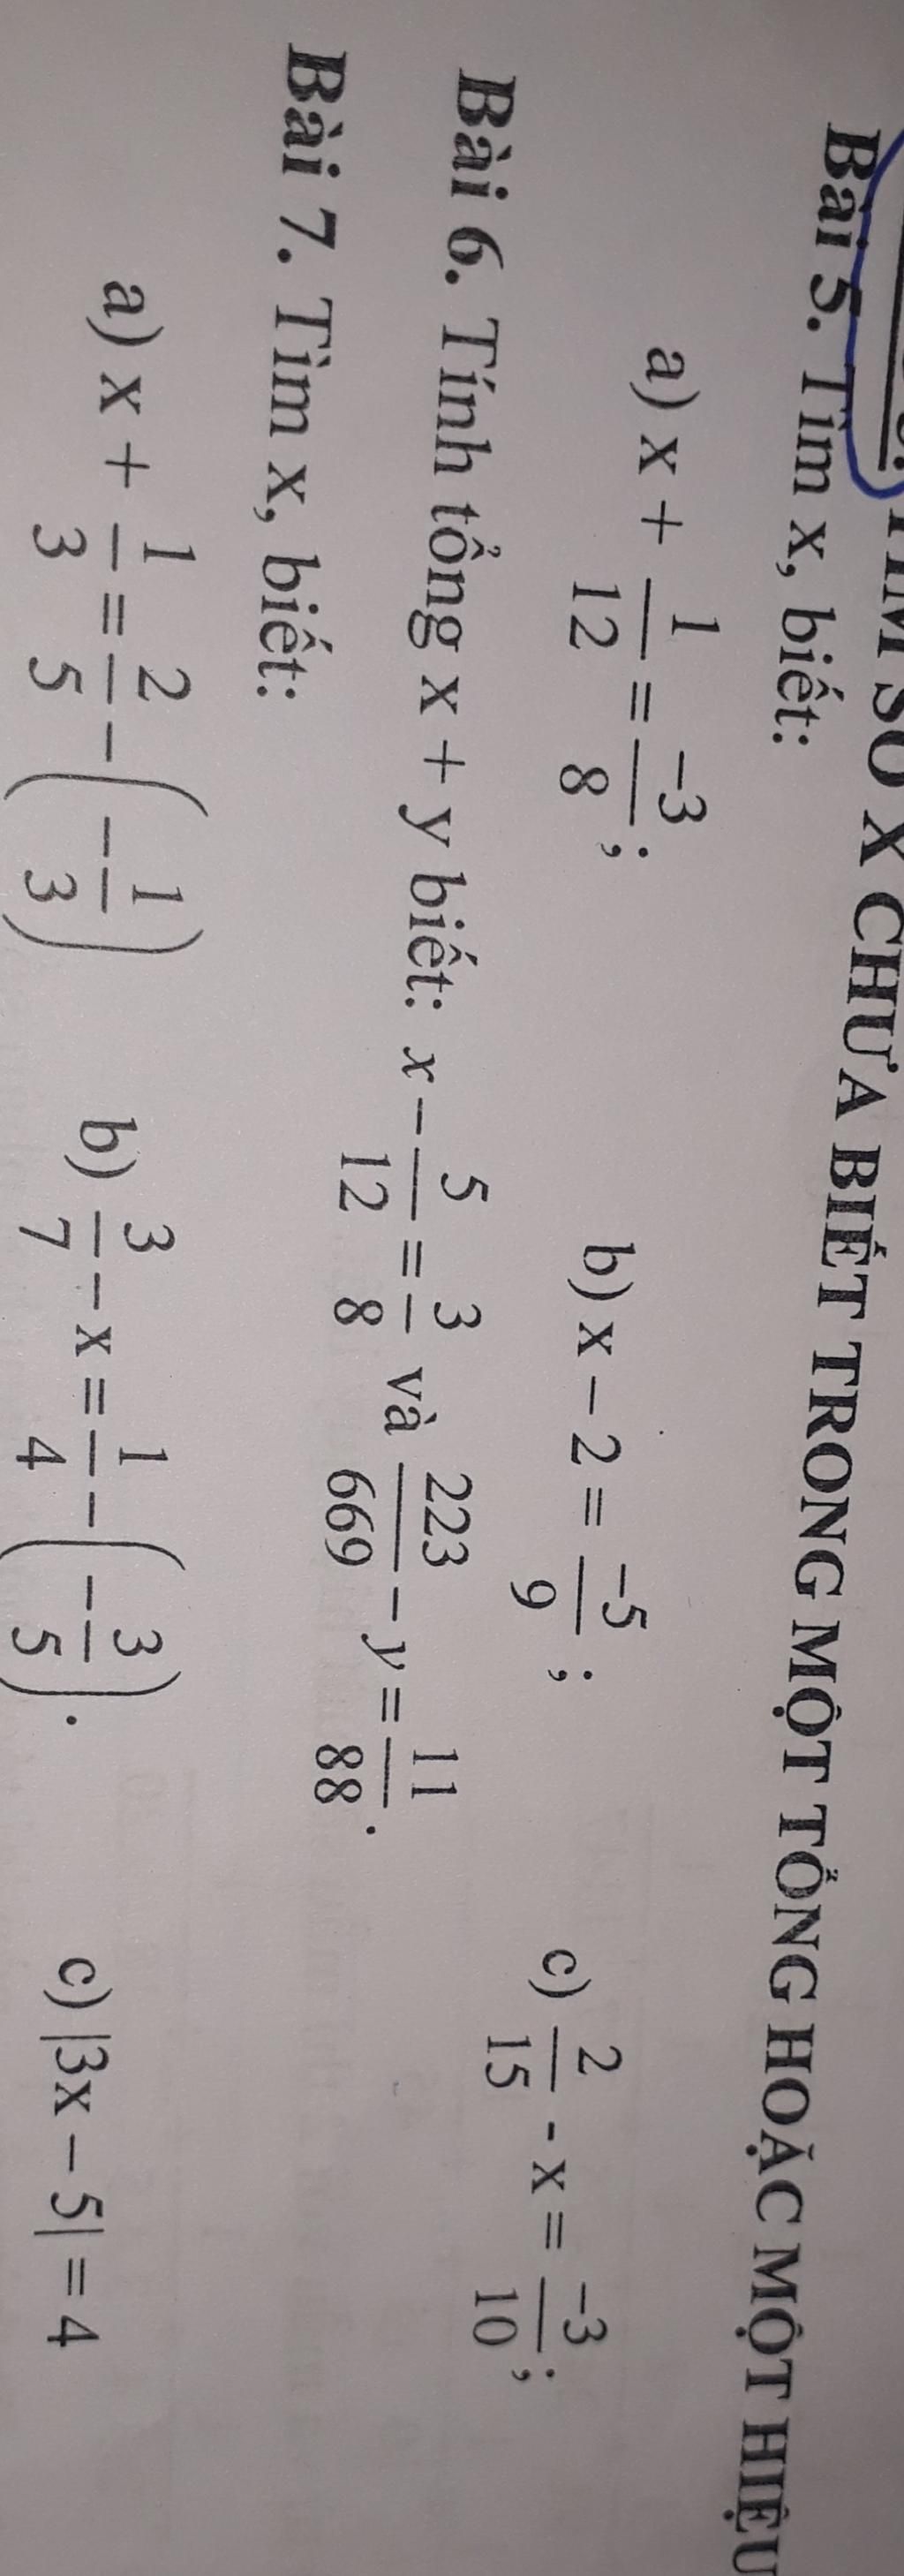 TÌM SỐ X CHƯA BIẾT TRONG MỘT TỔNG HOẶC MỘT HIỆU
Bài 5. Tìm x, biết:
a) x + 1/12 = -3/8; b) x - 2 = -5/9; c) 2/15 - x = -3/10;
Bài 6. Tính tổng x + y biết: x - 5/12 = 3/8 và 223/669 - y = 11/88.
Bài 7. Tìm x, biết:
a) x + 1/3 = 2/5 - (-1/3) b) 3/7 - x = 1/4 - (-3/5). c) |3x - 5| = 4